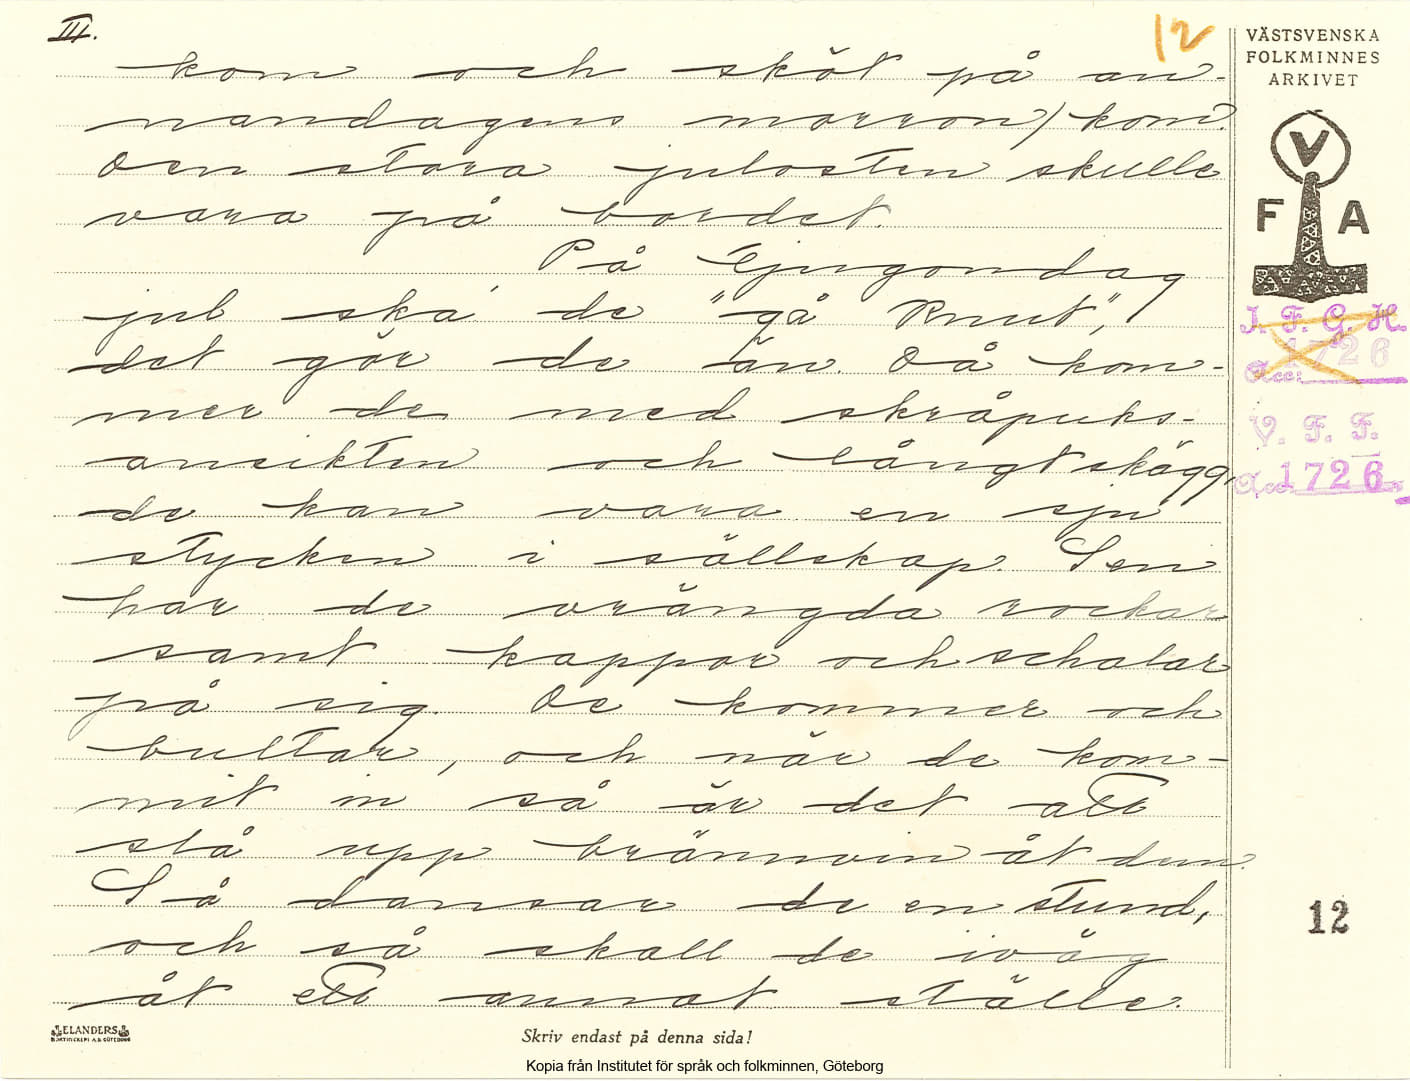 III.
12
VÄSTSVENSKA
FOLKMINNES
ARKIVET
V
F A
I. F. G. H.
Acc: 1726
V. F. F.
Acc. 1726
kom och sköt på an-
nandagens morron) kom.
Den stora julosten skulle
vara på bordet.
På tjugondag
jul ska de "gå Knut",
det gör de än. Då kom-
mer de med skråpuks-
ansikten och långt skägg,
de kan vara en sju
stycken i sällskap. Sen
har de vrängda rockar
samt kappor och schalar
på sig. De kommer och
bultar, och när de kom-
mit in så är det att
slå upp brännvin åt dem.
Så dansar de en stund,
och så skall de iväg
åt ett annat ställe.
12
ELANDERS
BOKTRYCKERI A.B. GÖTEBORG
Skriv endast på denna sida!
Kopia från Institutet för språk och folkminnen, Göteborg